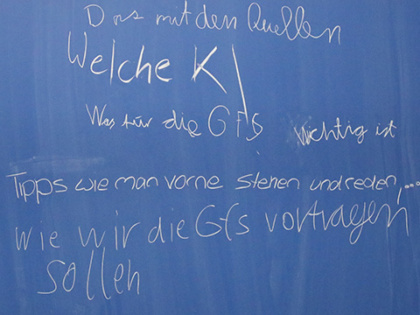 Das mit den Quellen
Welche KI
Was für die Gfs wichtig ist
Tipps wie man vorne stehen und reden ....
wie wir die Gfs vortragen
sollen